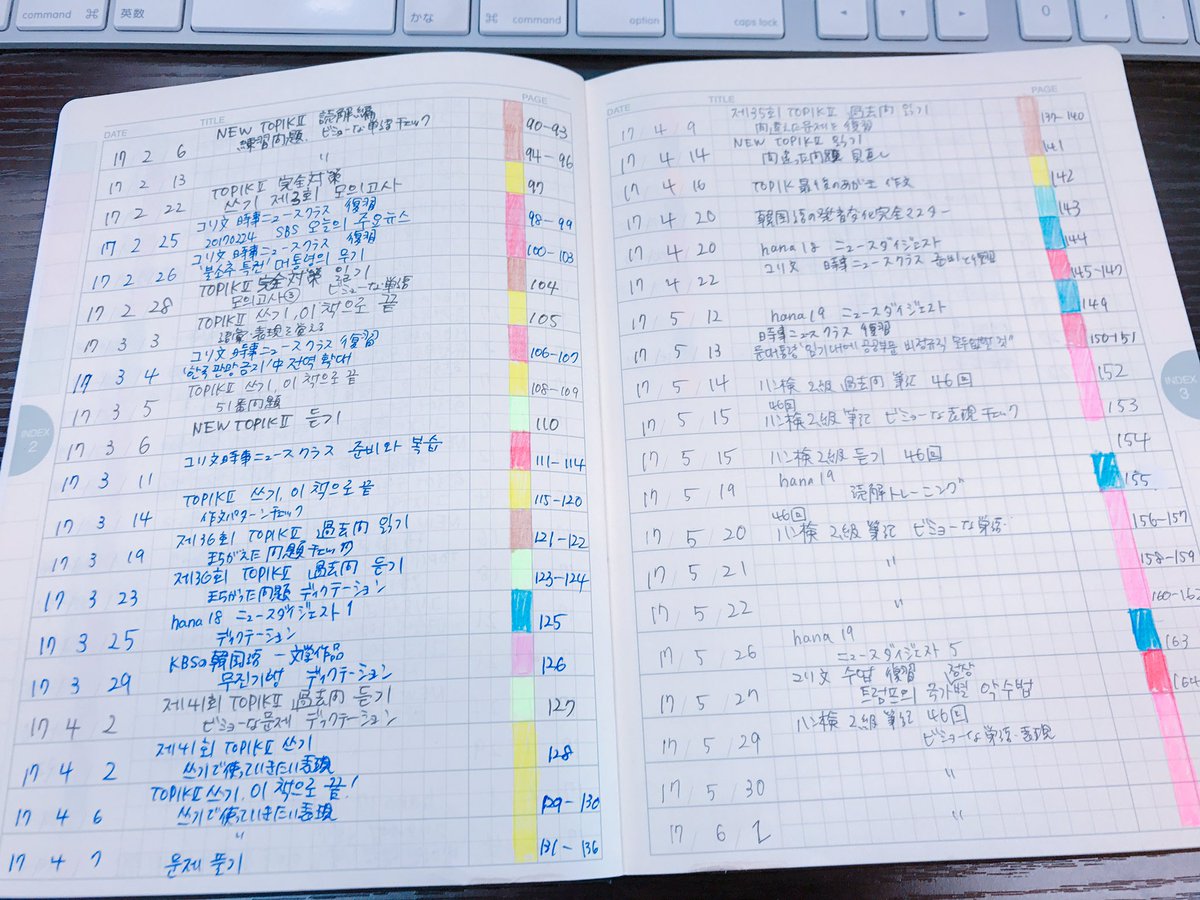 command ⌘
英数
かな
⌘ command
option
caps lock
0
DATE TITLE PAGE
17 2 6 NEW TOPIKⅡ 読解編 90-93
練習問題. ビミョーな単語チェック
17 2 13 〃 94-96
17 2 22 TOPIKⅡ 完全対策 97
쓰기 제3회 모의고사
17 2 25 コリ文 時事ニュースクラス 復習 98-99
20170224 SBS 오늘의 주요뉴스
17 2 26 コリ文 時事ニュースクラス 復習 100-103
'불소추 특권' 대통령의 무기
17 2 28 TOPIKⅡ 完全対策 읽기 104
모의고사③ ビミョーな単語
17 3 3 TOPIKⅡ 쓰기, 이 책으로 끝 105
語彙・表現を覚える
17 3 4 コリ文 時事ニュースクラス 復習 106-107
'한국 관광 금지' 中 전역 확대
17 3 5 TOPIKⅡ 쓰기, 이 책으로 끝 108-109
51番問題
17 3 6 NEW TOPIKⅡ 듣기 110
17 3 11 コリ文時事ニュースクラス 준비와 복습 111-114
17 3 14 TOPIKⅡ 쓰기, 이 책으로 끝 115-120
作文パターンチェック
17 3 19 제36회 TOPIKⅡ 過去問 읽기 121-122
まちがえた問題チェック
17 3 23 제36회 TOPIKⅡ 過去問 듣기 123-124
まちがった問題 ディクテーション
17 3 25 hana 18 ニュースダイジェスト 1 125
ディクテーション
17 3 29 KBSの韓国語 一文学作品 126
무진기행 ディクテーション
17 4 2 제41회 TOPIKⅡ 過去問 듣기 127
ビミョーな問題 ディクテーション
17 4 2 제41회 TOPIKⅡ 쓰기 128
쓰기で使っていきたい表現
17 4 6 TOPIKⅡ 쓰기, 이 책으로 끝! 129-130
쓰기で使っていきたい表現
17 4 7 〃 131-136
문제 풀기
INDEX
2
DATE TITLE PAGE
17 4 9 제35회 TOPIKⅡ 過去問 읽기 137-140
間違えた問題を復習
17 4 14 NEW TOPIKⅡ 읽기 141
間違った問題 見直し
17 4 16 TOPIK 最後のあがき 作文 142
17 4 20 韓国語の発音変化完全マスター 143
17 4 20 hana 18 ニュースダイジェスト 144
17 4 22 コリ文 時事ニュースクラス 준비と復習 145-147
17 5 12 hana 19 ニュースダイジェスト 149
17 5 13 時事ニュースクラス 復習 150-151
문대통령 "임기내에 공공부문 비정규직
17 5 14 ハン検 2級 過去問 筆記 46回 152
46回
17 5 15 ハン検 2級 筆記 ビミョーな表現チェック 153
17 5 15 ハン検 2級 듣기 46回 154
17 5 19 hana 19 155
読解トレーニング
46回
17 5 20 ハン検 2級 筆記 ビミョーな単語 156-157
17 5 21 〃 158-159
17 5 22 〃
17 5 26 hana 19 163
ニュースダイジェスト 5
17 5 27 コリ文 수업 復習 정상 164
트럼프의 국가별 악수법
17 5 29 ハン検 2級 筆記 46回
ビミョーな単語・表現
17 5 30 〃
17 6 2 〃
INDEX
3